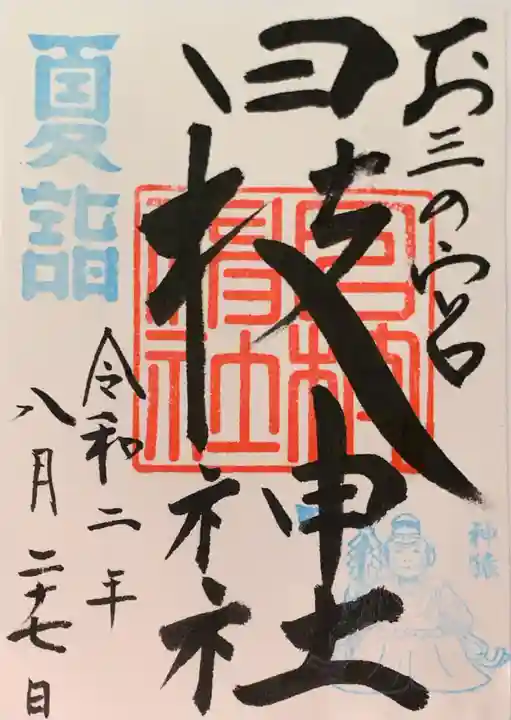 お三の宮
日枝神社
夏詣
令和二年
八月二十七日
神猿